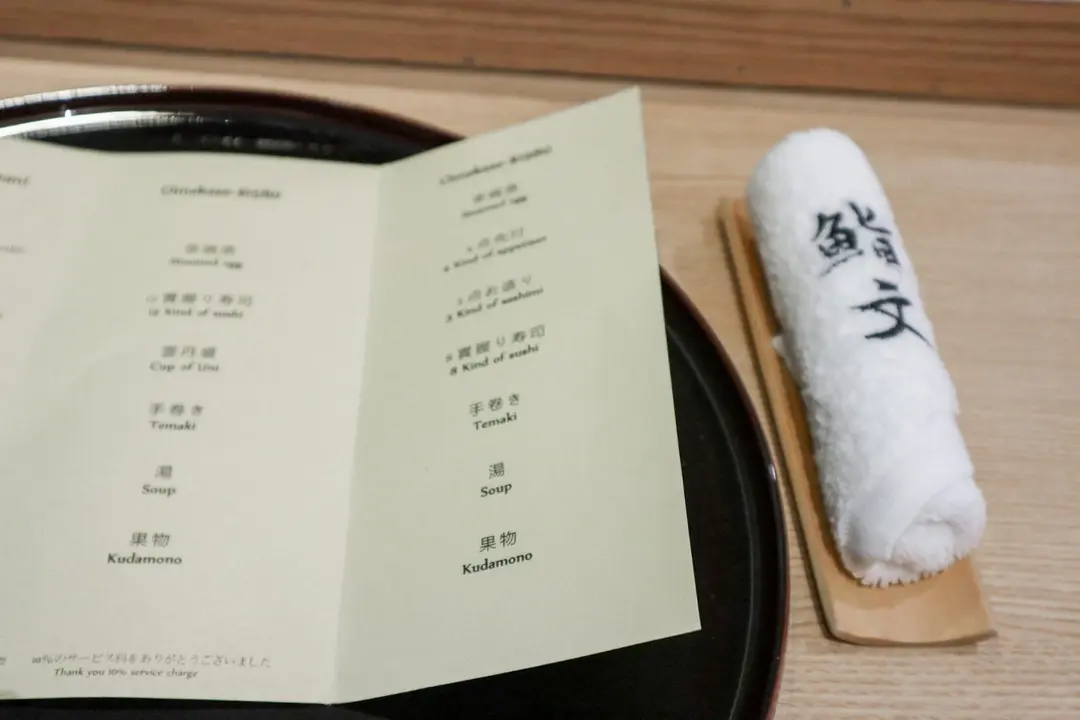 茶碗蒸
Steamed egg
貫握り寿司
12 Kind of sushi
雲丹盛
Cup of Uni
手巻き
Temaki
湯
Soup
果物
Kudamono
10%のサービス料をありがとうございました
Thank you 10% service charge
茶碗蒸
Steamed egg
Kind of appetizer
3 点お造り
3 Kind of sashimi
8 貫握り寿司
8 Kind of sushi
手巻き
Temaki
湯
Soup
果物
Kudamono
鮨
文